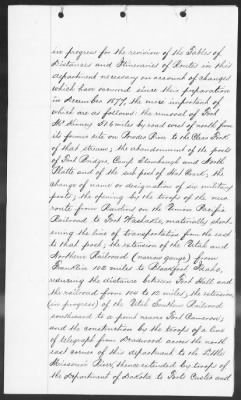 in progress for the revision of the Tables of
Distances and Itineraries of Routes in this
department necessary on account of changes
which have occurred since their preparation
in December 1877, the more important of
which are as follows: the removal of Fort
McKinney miles by road west of north from
its former site on Powder River to the Clear Fork
of that stream; the abandonment of the posts
of Fort Bridger, Camp Stambaugh and North
Platte and of the sub post of Hat Creek; the
change of name or designation of six military
posts; the opening by the troops of the new
route from Rawlins on the Union Pacific
Railroad to Fort Washakie, materially short-
ening the line of transportation from the east
to that post; the extension of the Utah and
Northern Railroad (narrow gauge) from
Franklin 102 miles to Blackfoot, Idaho,
reducing the distance between Fort Hall and
the railroad from 100 to miles; the extension
(in progress) of the Utah Southern Railroad
southward to a point near Fort Cameron;
and the construction by the troops of a line
of telegraph from Deadwood across the north
east corner of this department to the Little
Missouri River, thence extended by troops of
the Department of Dakota to Forts Custer and